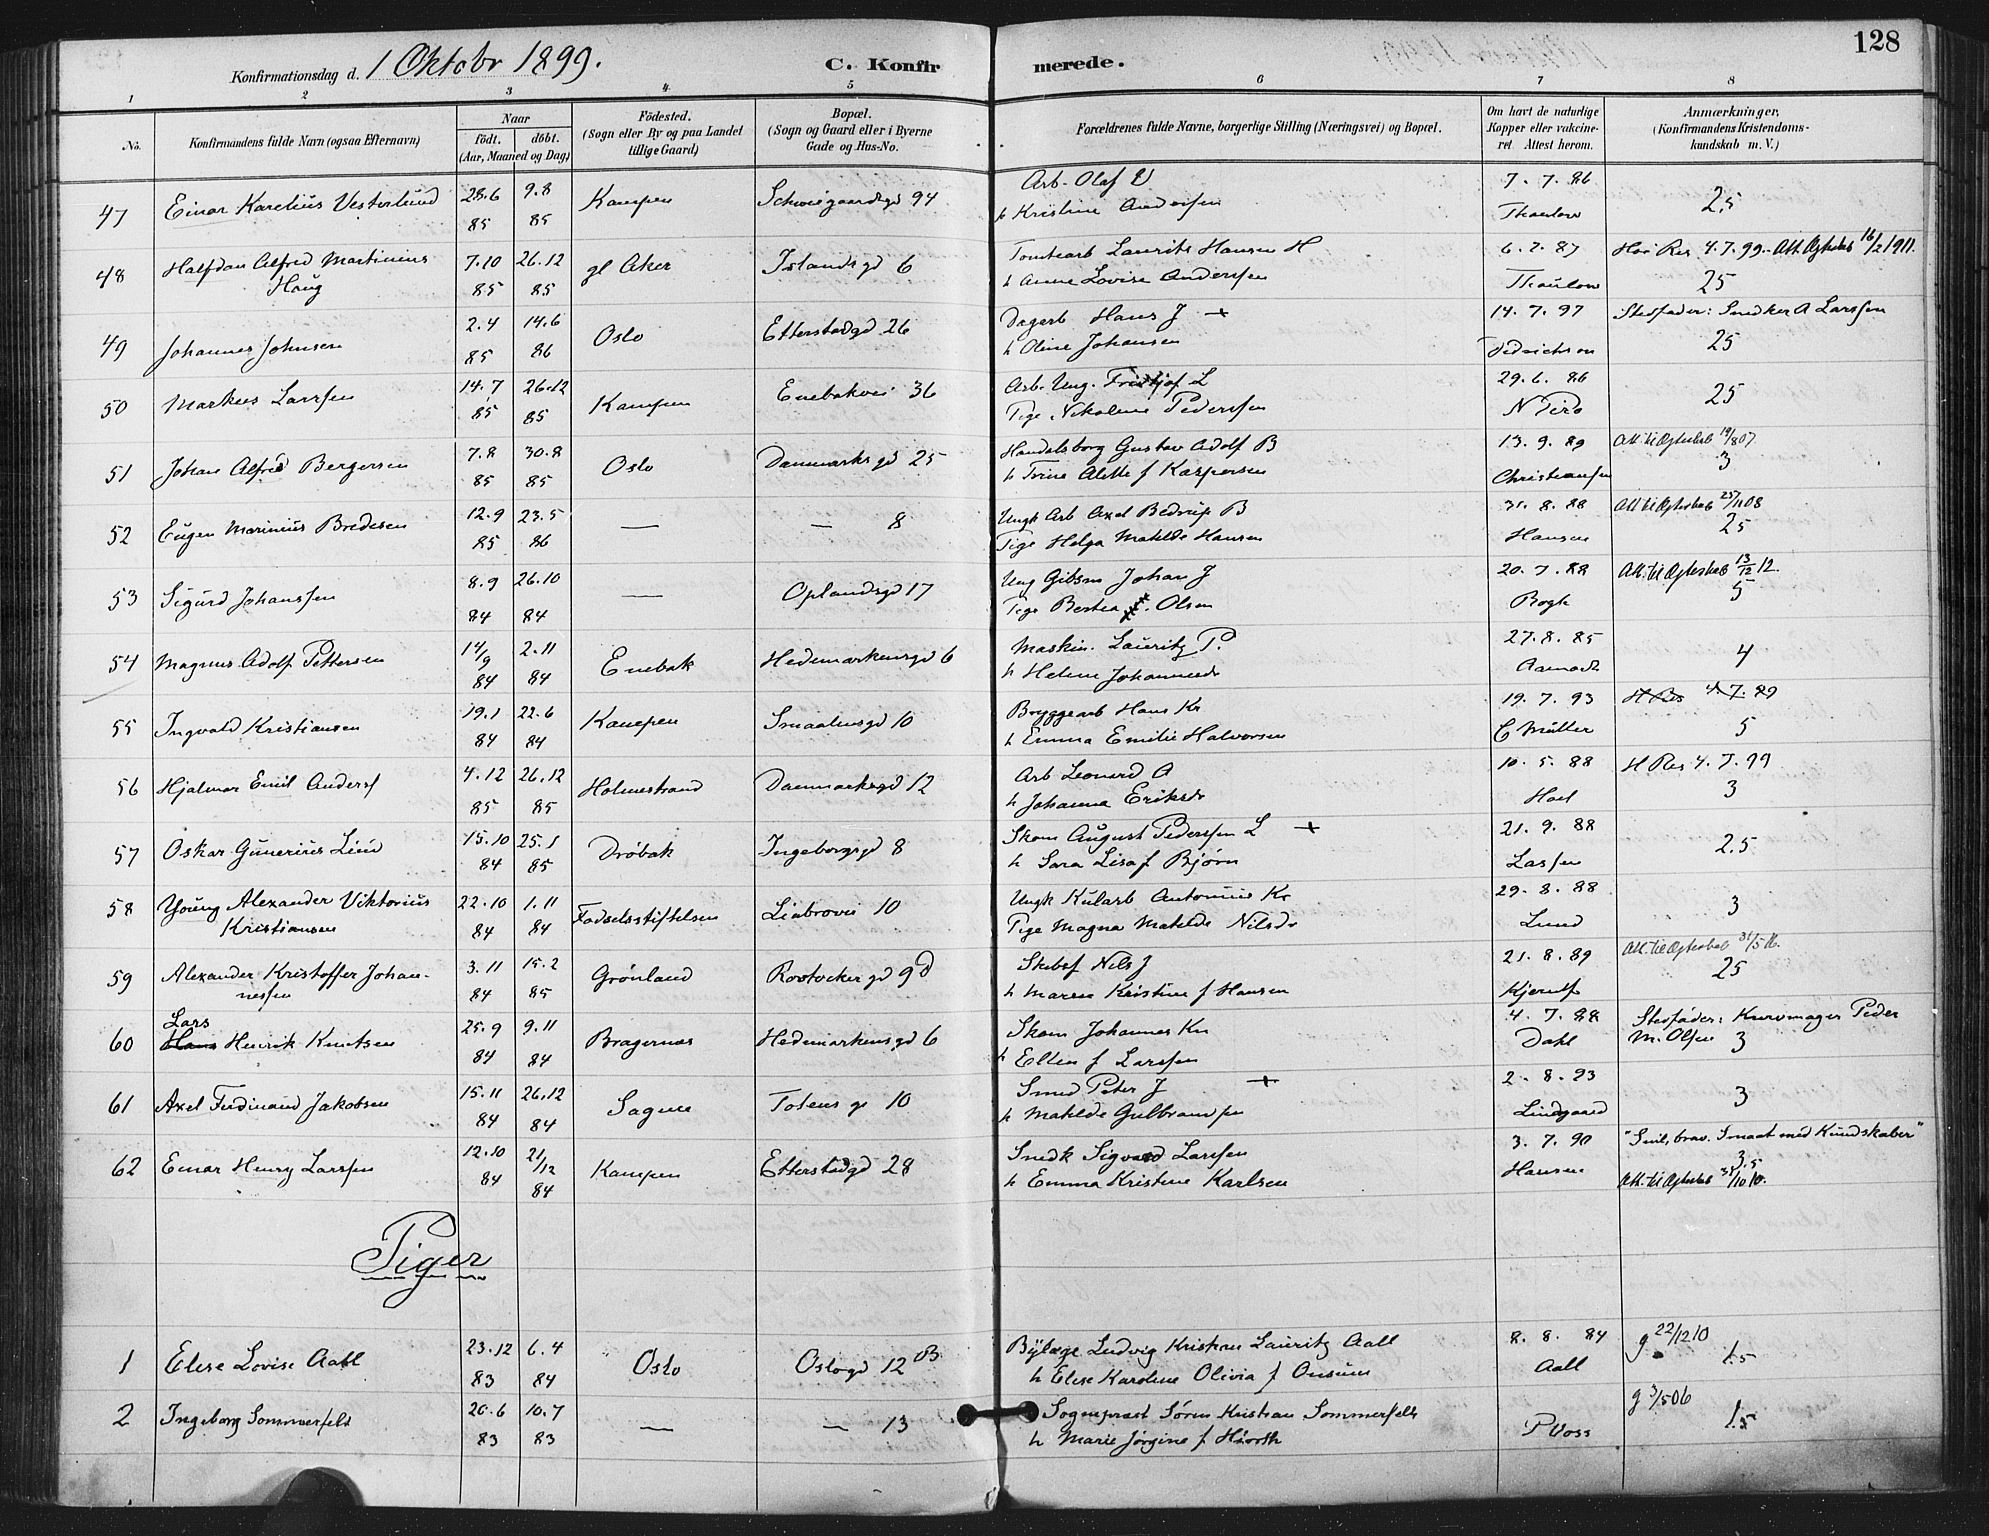 128
Konfirmationsdag d. 1 Oktobr 1899. C. Konfir merede.
1 2 3 4. 5 6 7 8
No. Konfirmandens fulde Navn (ogsaa Efternavn) Naar født. døbt. (Aar, Maaned og Dag) Födested. (Sogn eller By og paa Landet tillige Gaard) Bopæl. (Sogn og Gaard eller i Byerne Gade og Hus-No. Forældrenes fulde Navne, borgerlige Stilling (Næringsvei) og Bopæl. Om havt de naturlige Kopper eller vakcineret. Attest herom. Anmærkninger. (Konfirmandens Kristendomskundskab m. V.)
47 Einar Karelius Vesterlund 28.6 85 9.8 85 Kampen Schweigaardsgd 94 Arb. Olaf V 7. 7. 86 2,5
h Kristine Andersen Thaulow
48 Halfdan Alfred Martinius 7.10 26.12 gl Aker Islandsgd 6 Tomtearb Laurits Hansen H 6. 7. 87 Hos Res 4.7.99. Att. Ægteskab 16/2 1911.
Haug 85 85 h Anne Lovise Anderssen Thaulow 25
49 Johannes Johnsen 2.4 85 14.6 86 Oslo Etterstadgd 26 Dagarb Hans J + 14. 7. 97 Stedfader: Snedker A Larssen
h Oline Johansen 25
50 Markus Larssen 14.7 85 26.12 85 Kampen Enebakvei 36 Arb. Ung. Fridtjof L 29. 6. 86 25
Pige Nikoline Pederssen
51 Johan Alfred Bergersen 7.8 85 30.8 85 Oslo Danmarks gd 25 Handelsborg Gustav Adolf B 13. 9. 89 Att. til Ægteskab 19/8 07.
h Trine Alette f Kaspersen Christiansen 3
52 Eugen Marinius Bredesen 12.9 85 23.5 86 — — 8 Ungk Arb Axel Bedrup B 31. 8. 88 Att til Ægteskab 25/11 08
Pige Helga Matilde Hansen Hansen 25
53 Sigurd Johanssen 8.9 84 26.10 84 — Oplandsgd 17 Ung Gibsm Johan J 20. 7. 88 Att. til Ægteskab 13/12 12.
Pige Bertea Olsen 5
54 Magnus Adolf Pettersen 14/9 84 2.11 84 Enebak Hedemarkensgd 6 Maskin. Lauritz P. 27. 8. 85 4
h Helene Johannesd Aamodt
55 Ingvald Kristiansen 19.1 84 22.6 84 Kampen Smaalensgd 10 Bryggearb Hans Kr 19. 7. 93 H Res 4.7.99
h Emma Emilie Halvorsen C Müller 5
56 Hjalmar Emil Anders 4.12 85 26.12 85 Holmestrand Danmarksgd 12 Arb Leonard A 10. 5. 88 H Res 4. 7. 99
h Johanna Eriksdr Hoel 3
57 Oskar Gunerius Lund 15.10 84 25.1 85 Drøbak Ingeborgsgd 8 Skom August Pederssen L + 21. 9. 88 2.5
h Sara Lisa f Bjørn Lassen
58 Young Alexander Viktorius 22.10 1.11 Fødselsstiftelsen Liabrovei 10 Ungk Kularb Antonius Kr 29. 8. 88 3
Kristiansen 84 84 Pige Magna Matilde Nilsdr Lund
59 Alexander Kristoffer Johan- 3.11 15.2 Grønland Rostocker gd 9 d Skibsf Nils J 21. 8. 89 Att. til Ægteskab 31/5 16.
nessen 84 85 h Maren Kristine f Hansen Kjerulf 25
Lars
60 Hans Henrik Knutsen 25.9 84 9.11 84 Bragernæs Hedemarkensgd 6 Skom Johannes Kn 4. 7. 88 Stedfader: Kurvmager Peder
h Ellen f Larssen Dahl M. Olsen 3
61 Axel Ferdinand Jakobsen 15.11 84 26.12 84 Sagene Totens g 10 Smed Peter J + 2. 8. 93 3
h Matilde Gulbrandsen Lindgaard
62 Einar Henry Larssen 12.10 84 21/12 84 Kampen Etterstadgd 28 Snedk Sigvard Larssen 3. 7. 90 "Snil, brav. Smaat med Kundskaber"
h Emma Kristine Karlsen Hansen 3.5
Att. til Ægteskab 31/10 10.
Piger
1 Elise Lovise Aall 23.12 83 6.4 84 Oslo Oslogd 12 B Bylæge Ludvig Kristian Lauritz Aall 8. 8. 84 g 22/12 10
h Elise Karoline Olivia f Onsum Aall 1.5
2 Ingeborg Sommerfelt 20.6 83 10.7 83 — — 13 Sogneprest Søren Kristian Sommerfelt g 3/5 06
h Marie Jørgine f Hiorth P Voss 1.5